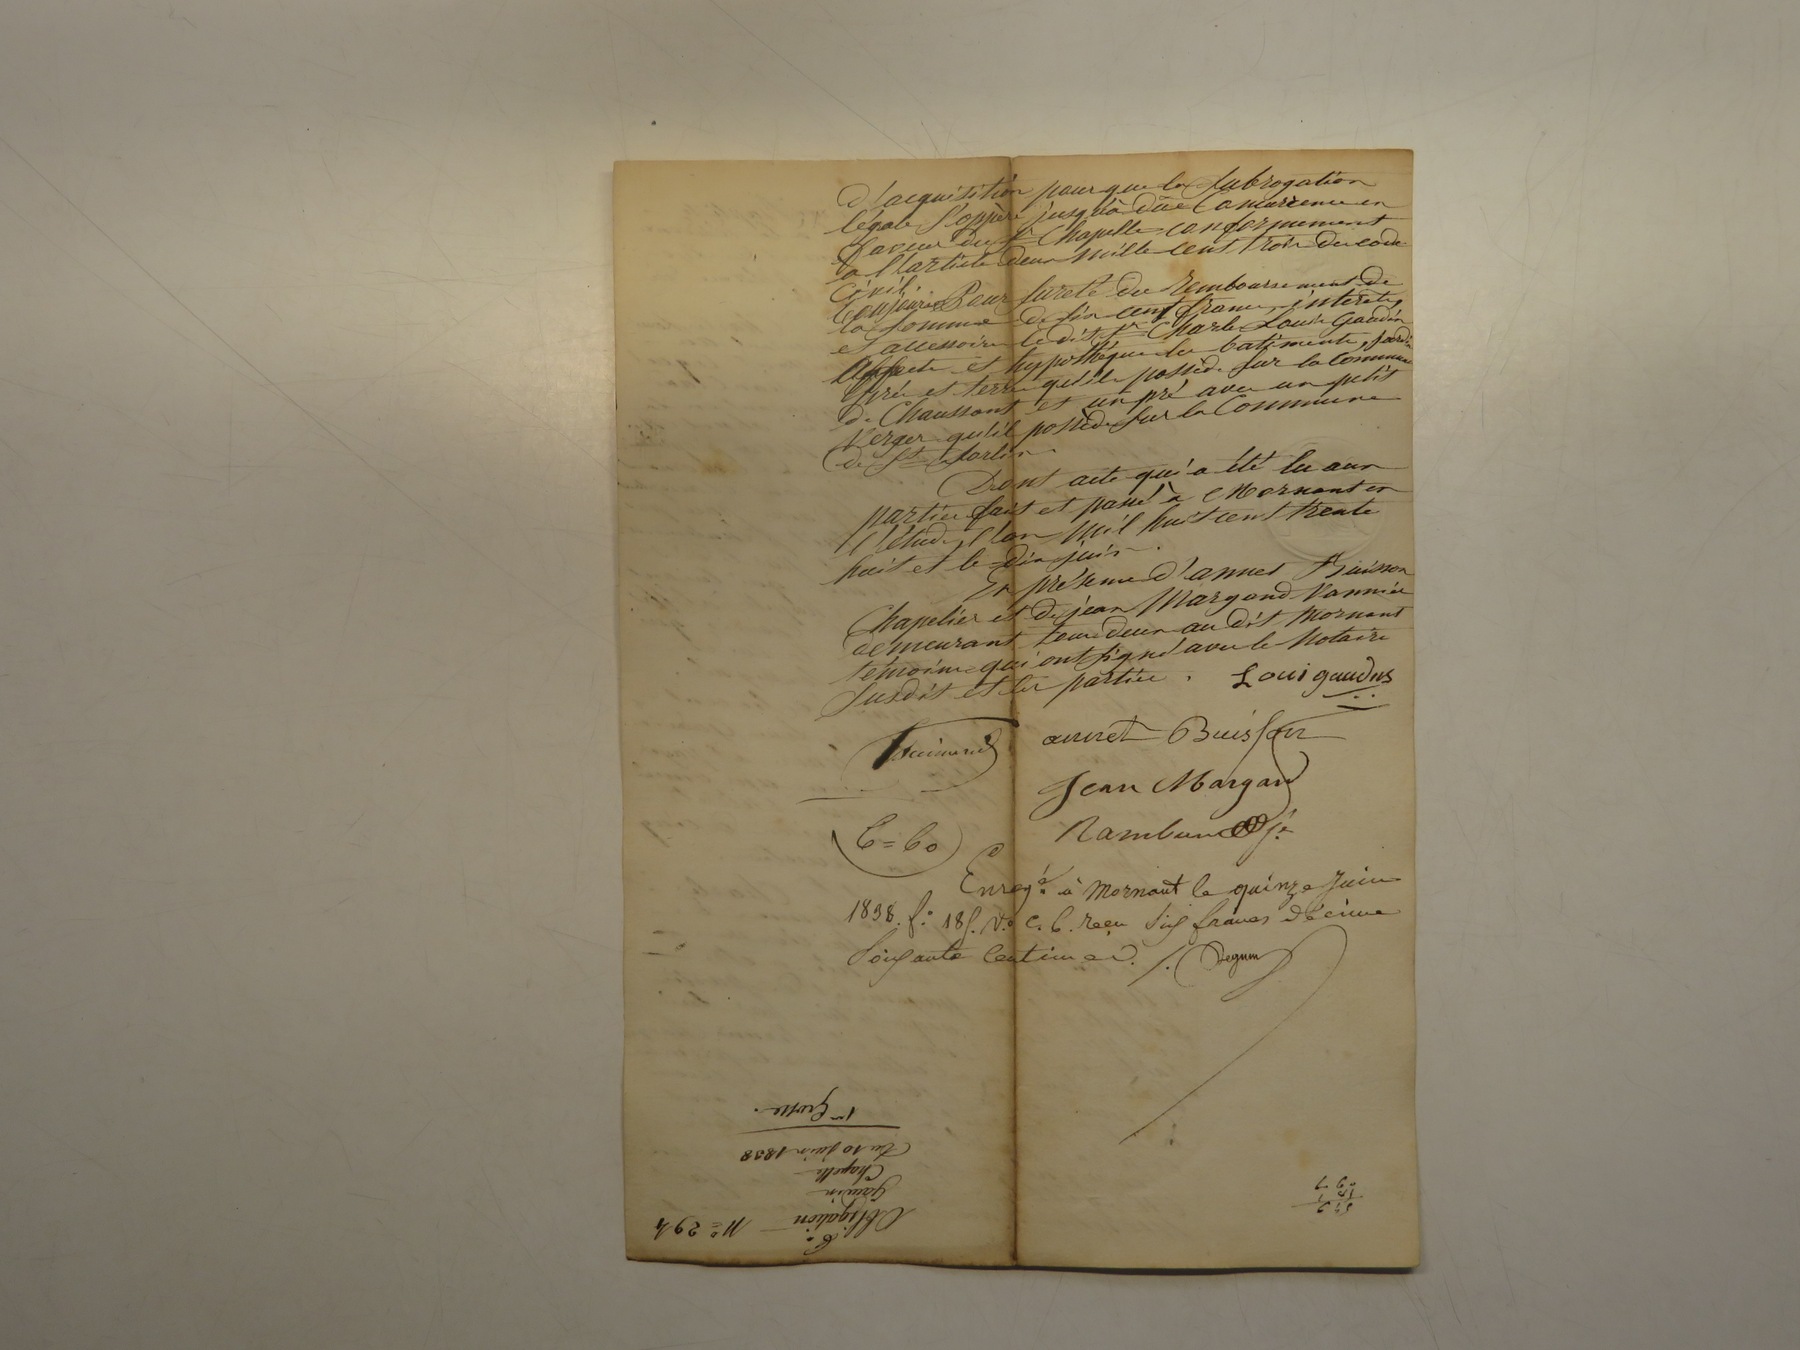 d'acquisition pour que la Subrogation
légale s'opère jusqu'à düe Concurrence en
faveur du Sr Chapelle conformement
a l'article deux mille cent trois du code
Civil.
Pour sureté du Remboursement de
la Somme de six cent francs, interets,
et accessoires le dit Sr Charle Louis Gaudin
affecte et hypothèque les batiments, Jardin
pré et terre qu'il possède sur la Commune
de Chaussant et un pré avec un petit
Verger qu'il possède sur la Commune
de St Sorlin.
Dont acte qui a été lu aux
parties fait et passé à Mornant en
l'étude, l'an Mil huit cent trente
huit et le dix juin.
En présence d'annet Buisson
Chapelier et de jean Margand Vannier
demeurant tous deux au dit Mornant
témoins qui ont signé avec le Notaire
Susdit et les parties.
Loui gaudin
annet Buisson
Jean Margand
C = 60
Enregé à Mornant le quinze Juin
1838. fo 185. Vo C. 6. reçu Six francs décime
Soixante Centimes.
No 294
6.
Obligation
Gaudin
Chapelle
Du 10 juin 1838
1re Grosse.